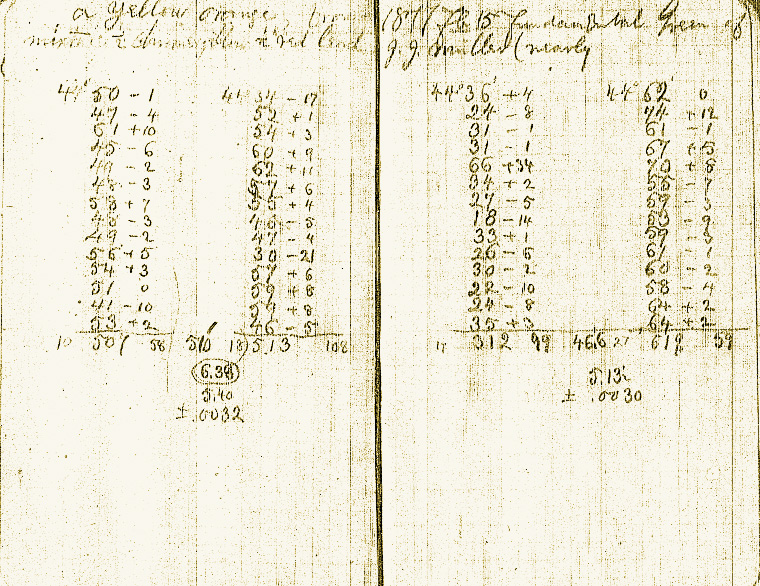 a Yellow orange, from
mixture
44° 50 − 1 44° 34 − 17
47 − 4 52 + 1
61 + 10 54 + 3
45 − 6 60 + 9
49 − 2 62 + 11
48 − 3 57 + 6
58 + 7 55 + 4
48 − 3 46 − 5
49 − 2 47 − 4
56 + 5 30 − 21
54 + 3 57 + 6
51 0 59 + 8
41 − 10 59 + 8
53 + 2 46 − 5
10 507 58 510 18 513 108
6.38
5.40
± .0032
1877 Fe 15 Fundamental Green of
J. J. Müller (nearly
44° 36 + 4 44° 62 0
24 − 8 74 + 12
31 − 1 61 − 1
31 − 1 67 + 5
66 + 34 70 + 8
34 + 2 55 − 7
27 − 5 59 − 3
18 − 14 53 − 9
33 + 1 59 − 3
26 − 6 61 − 1
30 − 2 60 − 2
22 − 10 58 − 4
24 − 8 64 + 2
35 + 3 64 + 2
312 99 466 27 619 59
5.132
± .0030